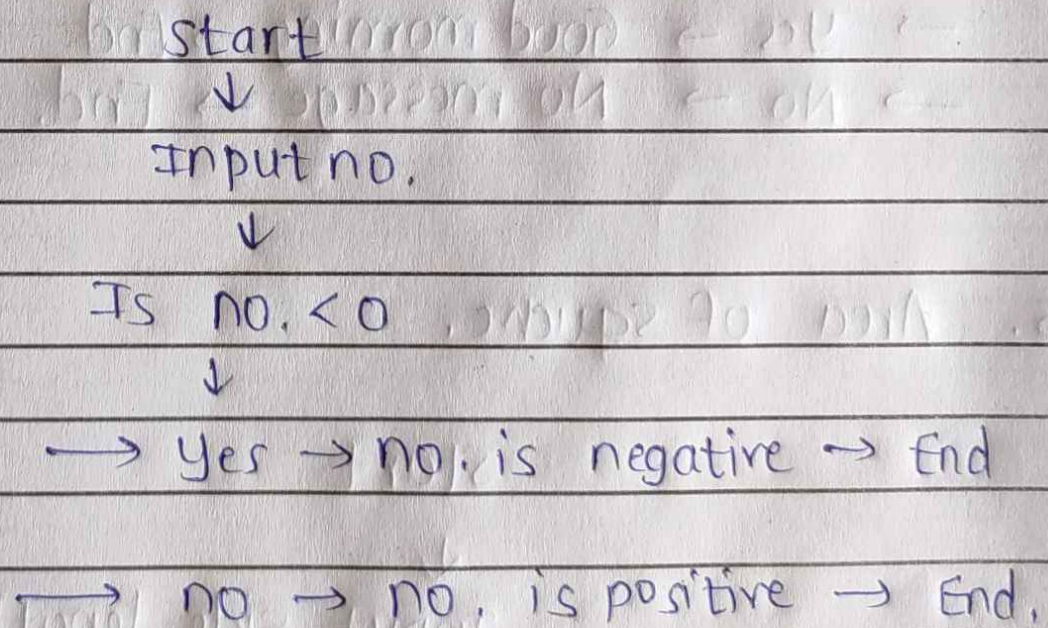 Start
↓
Input no.
↓
Is no. < 0
↓
→ Yes → no. is negative → End
→ no → no. is positive → End.